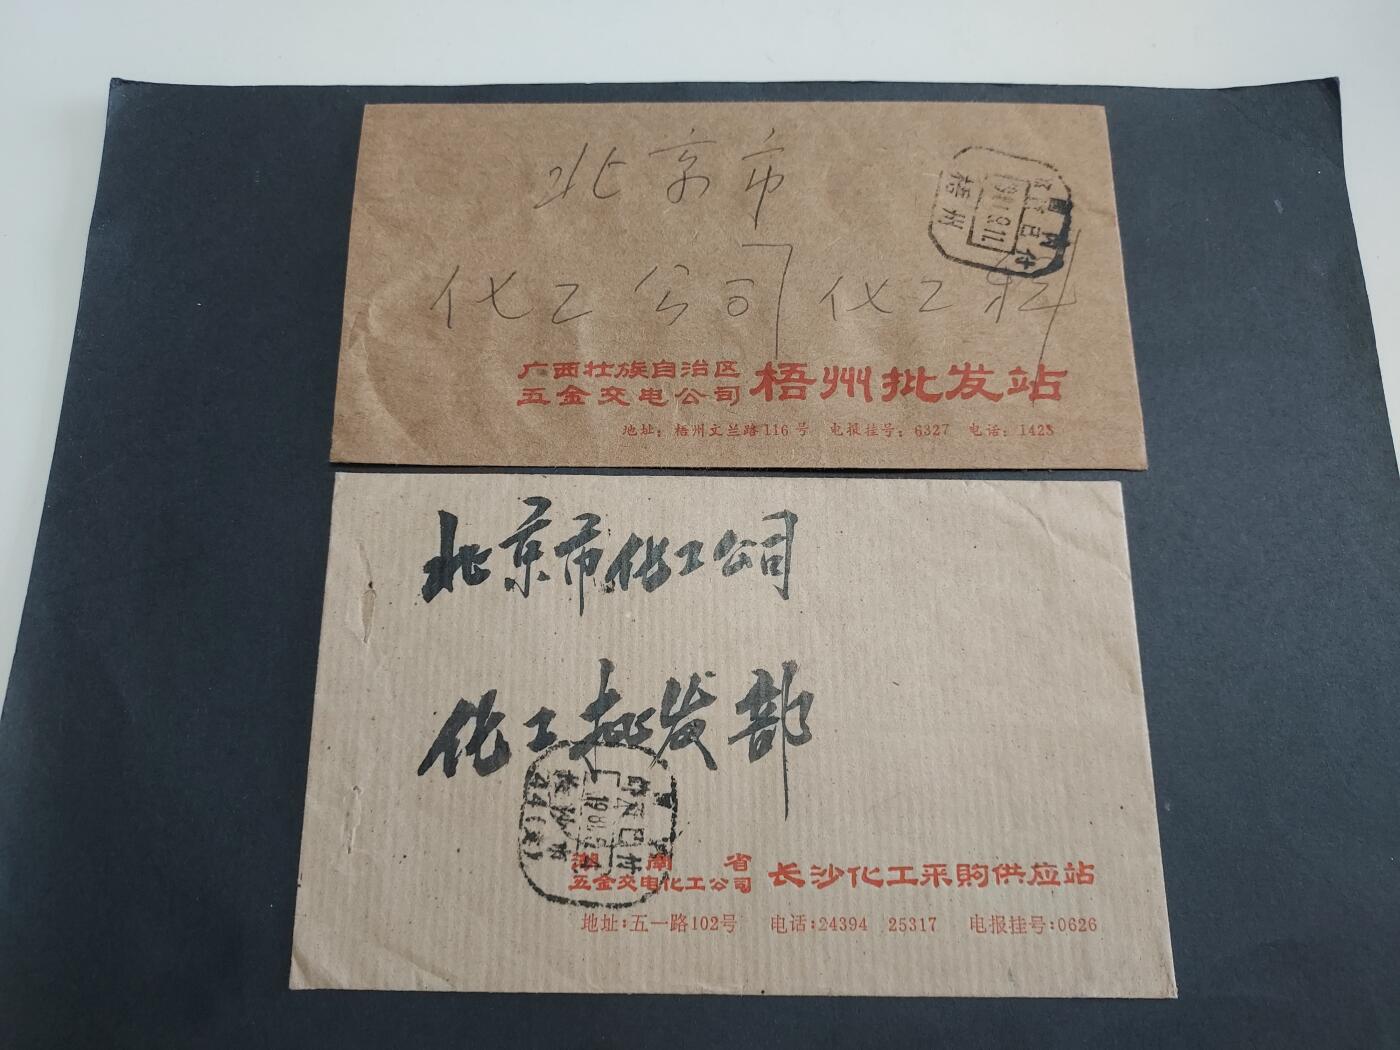 北京市
化工公司化工科
国内
邮资已付
梧州
广西壮族自治区
五金交电公司 梧州批发站
地址：梧州文兰路116号 电报挂号：6327 电话：1423
北京市化工公司
化工批发部
国内
邮资已付
长沙
湖南省
五金交电化工公司 长沙化工采购供应站
地址:五一路102号 电话:24394 25317 电报挂号:0626